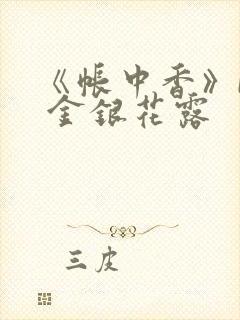 《帐中香》
金银花露
三皮